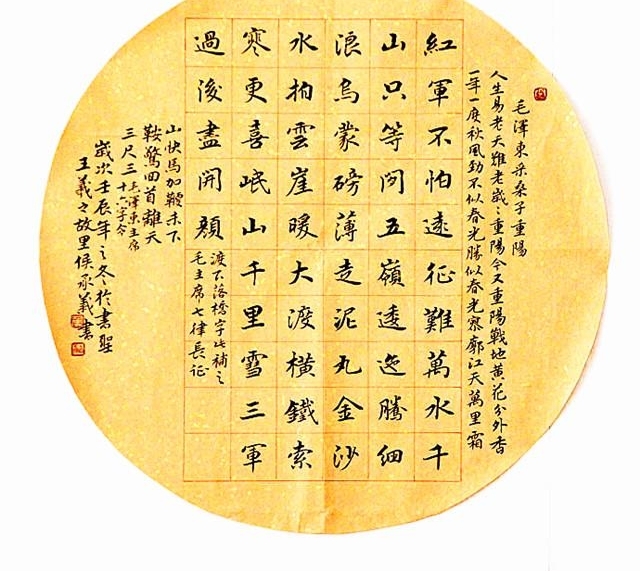 毛澤東采桑子重陽
人生易老天難老歲ミ重陽今又重陽戰地黃花分外香
一年一度秋風勁不似春光勝似春光寥廓江天萬里霜
紅軍不怕遠征難萬水千
山只等閒五嶺逶迤騰細
浪烏蒙磅薄走泥丸金沙
水拍雲崖暖大渡橫鐵索
寒更喜岷山千里雪三軍
過後盡開顏
渡下落橋字此補之
毛主席七律長征
山快馬加鞭未下
鞍驚回首離天
三尺三毛澤東主席十六字令
歲次壬辰年之冬於書聖
王羲之故里侯承義書